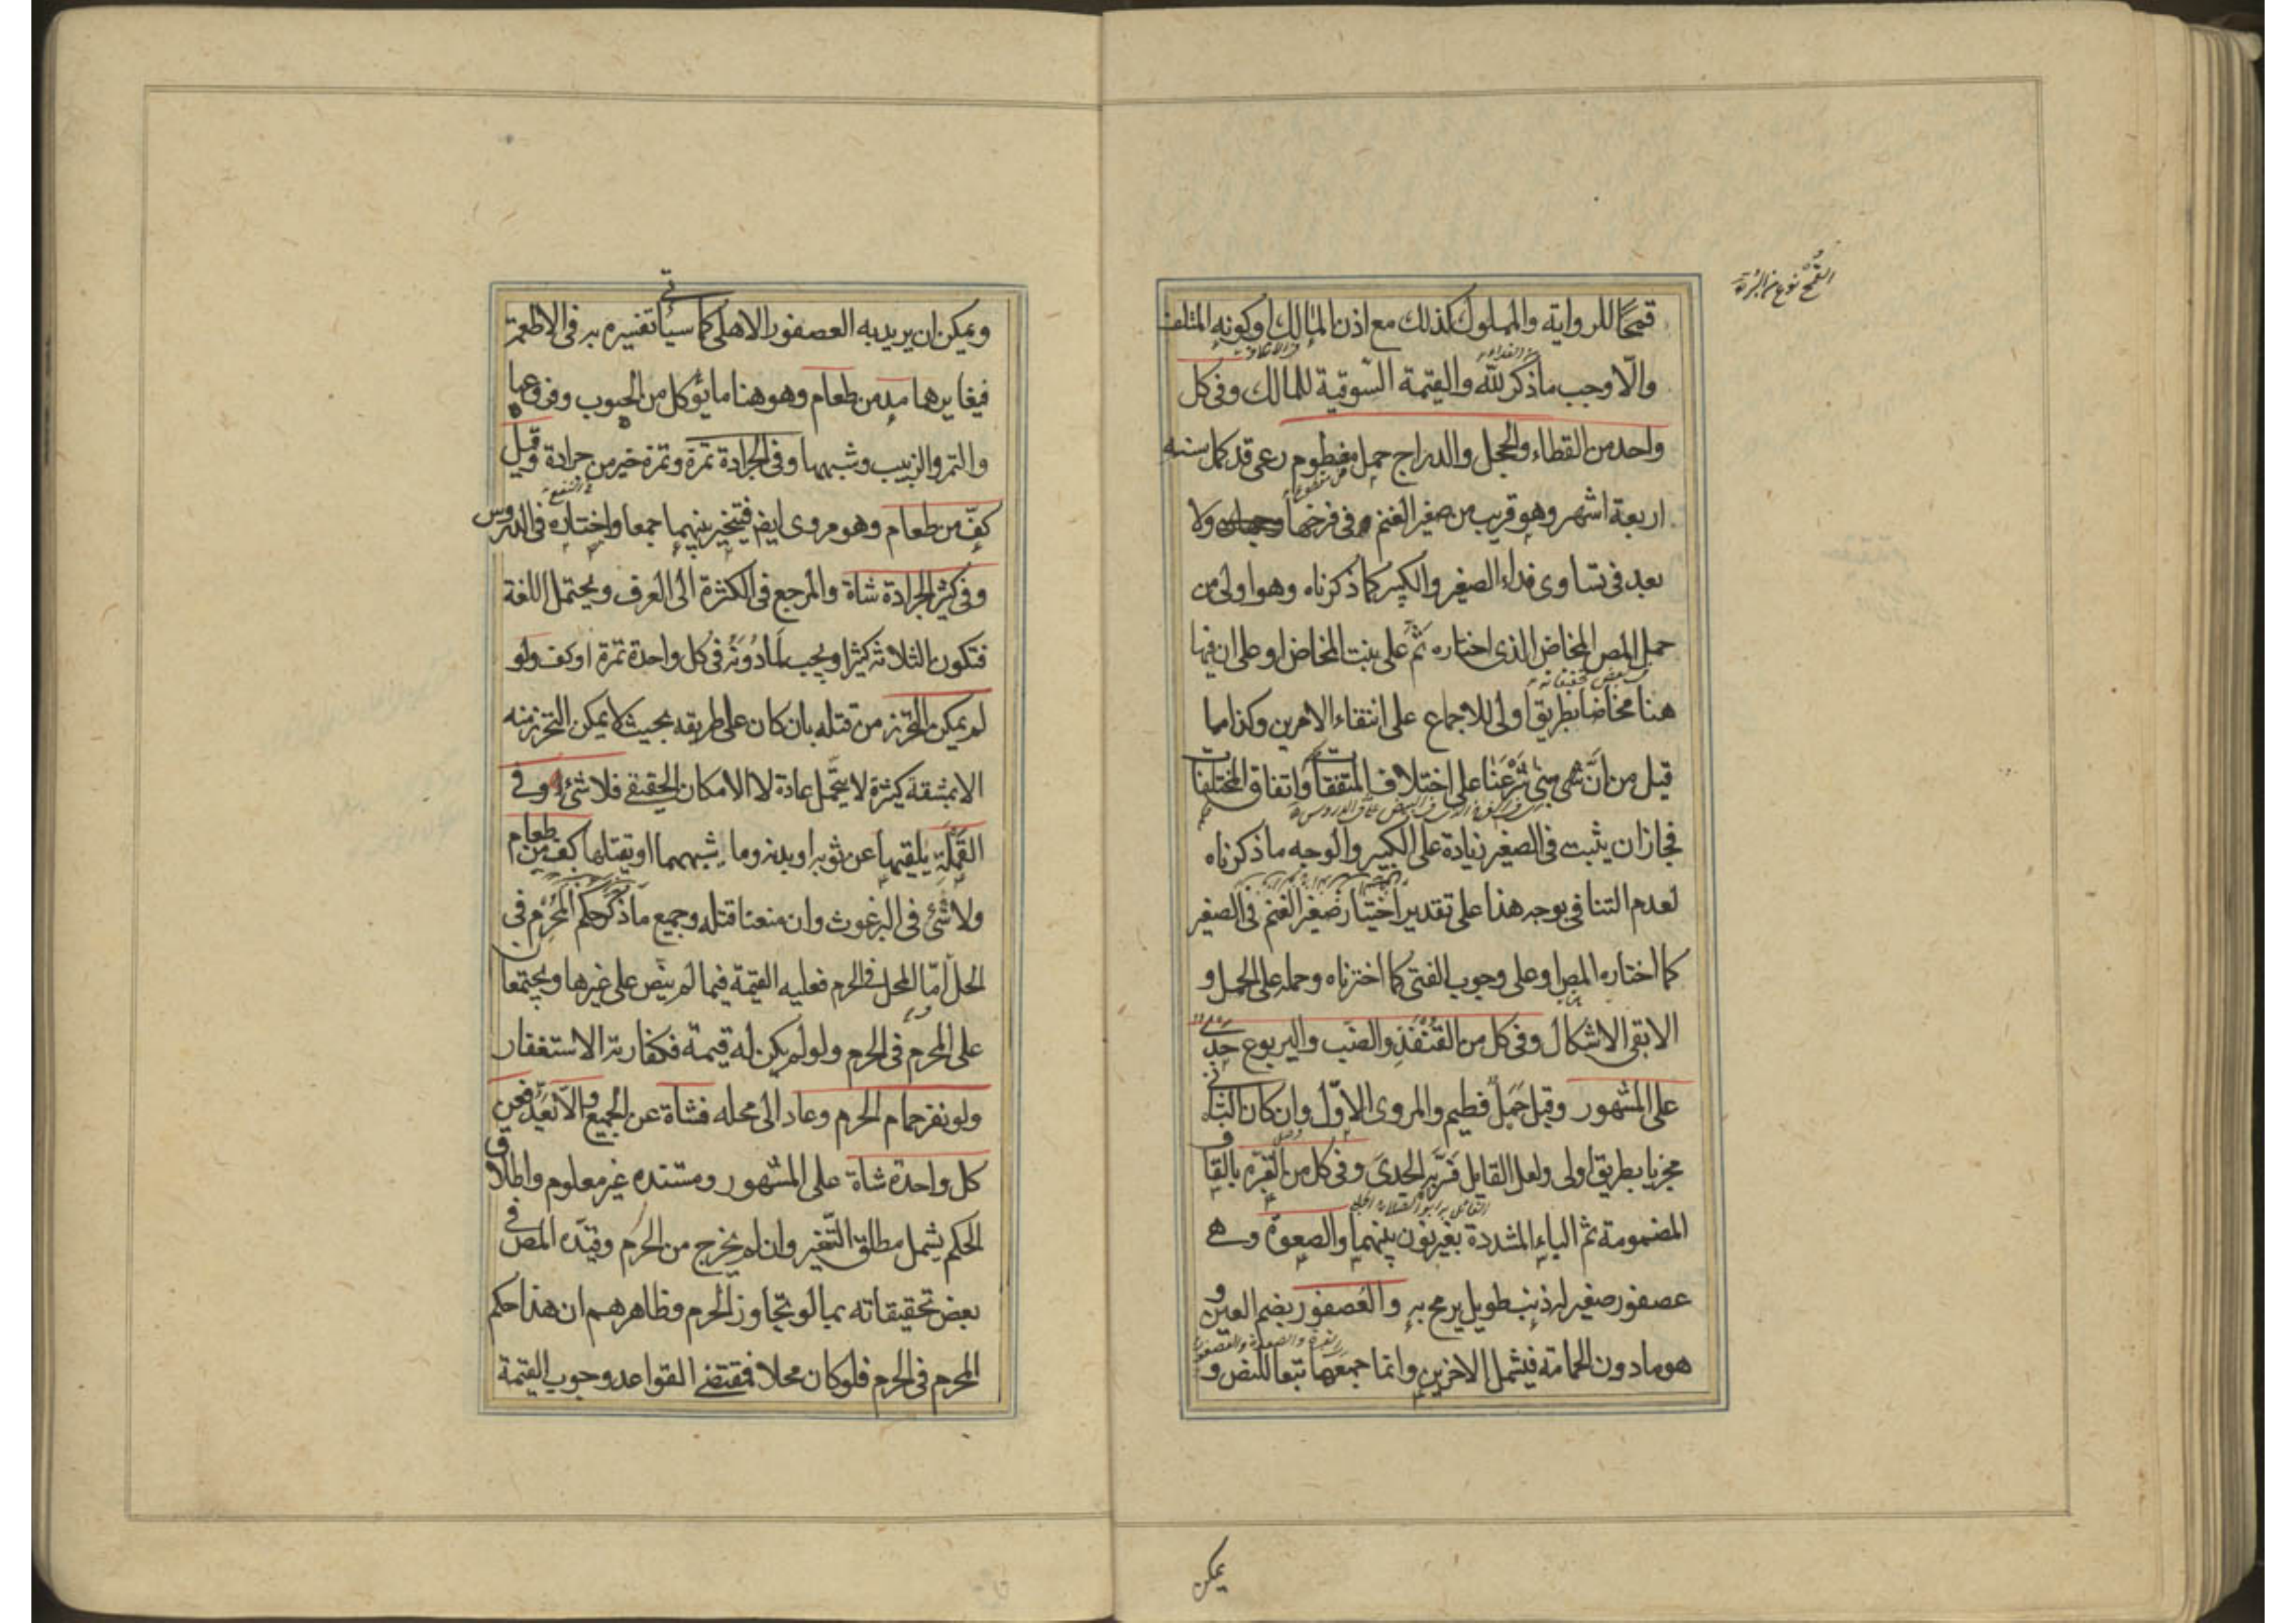 القمح نوع من البر
قمحًا للرواية والمملوك كذلك مع اذن المالك او كونه المتلف
والّا وجب ما ذكر للّه والقيمة السّوقية للمالك وفى كل
واحد من القطاء والحجل والدراج حمل مفطوم رعى قد كمل سنه
اربعة اشهر وهو قريب من صغير الغنم فى فرخها ولا
بعد فى تساوى فداء الصغير والكبير كما ذكرناه وهو اولى من
حمل المص المخاض الذى اختاره ثَمَّ على بنت المخاض او على ان فيها
فى بعض تحقيقاته
هنا مخاضا بطريق اولى للاجماع على انتفاء الامرين وكذا مما
قيل من انّ مبنى شرعنا على اختلاف المتفقات واتفاق المختلفات
فجاز ان يثبت فى الصغير زيادة على الكبير والوجه ما ذكرناه
لعدم التنافى بوجه هذا على تقدير اختيار صغير الغنم فى الصغير
كما اختاره المص او على وجوب الفتى كما اخترناه وحمله على الحمل و
الا بقى الاشكال وفى كل من القُنْفُذِ والضَب واليربوع جَدى
على المشهور وقيل حَمَلٌ فطيم والمروى الاوّل وان كان الثانى
مجزيا بطريق اولى ولعل القايل فَسَّر به الجدى وفى كل من القُبّرة بالقاف
القائل به ابو الصلاح الحلبى
المضمومة ثم الباء المشددة بغير نون بينهما والصعوة وهى
عصفور صغير له ذنب طويل يرمح به والعُصفور بضم العين و
القبرة والصعوة والعصفور
هو ما دون الحمامة فيشمل الاخرين وانما جمعها تبعا للنص و
يمكن
ويمكن ان يريد به العصفور الاهلى كما سيأتى تفسيره به فى الاطعمة
فيغايرها مد من طعام وهو هنا ما يؤكل من الحبوب وفروعها
والتمر والزبيب وشبهها وفى الجرادة تمرة وتمرة خير من جرادة وقيل
كفّ من طعام وهو مروى ايضا فيتخير بينهما جمعا واختاره فى الدروس
وفى كثير الجرادة شاة والمرجع فى الكثرة الى العرف ويحتمل اللغة
فتكون الثلاثة كثيرا ويجب لما دُونَه فى كل واحدة تمرة او كف ولو
لم يمكن التحرز من قتله بان كان على طريقه بحيث لا يمكن التحرز منه
الا بمشقة كثيرة لا يتحمل عادة لا الامكان الحقيقى فلا شئ وفى
القَمْلَةِ يلقيها عن ثوبه او بدنه وما يشبههما او يقتلها كف من طعام
ولا شئ فى البرغوث وان منعنا قتله وجميع ما ذكر حكم المُحْرِم فى
الحل امّا المحل فى الحرم فعليه القيمة فيما لم ينص على غيرها ويجتمعان
على المحرم فى الحرم ولو لم يكن له قيمة فكفارته الاستغفار
ولو نفر حمام الحرم وعاد الى محله فشاة عن الجميع والّا يَعُد فعن
كل واحدة شاة على المشهور ومستنده غير معلوم واطلاق
الحكم يشمل مطلق التنفير وان لم يخرج من الحرم وقيّده المص فى
بعض تحقيقاته بما لو تجاوز الحرم وظاهرهم ان هذا حكم
المحرم فى الحرم فلو كان محلا فمقتضى القواعد وجوب القيمة